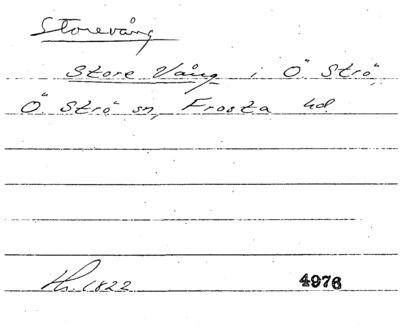 Storevång
Store Vång i Ö Strö,
Ö Strö sn, Frosta hd.
1822 4976